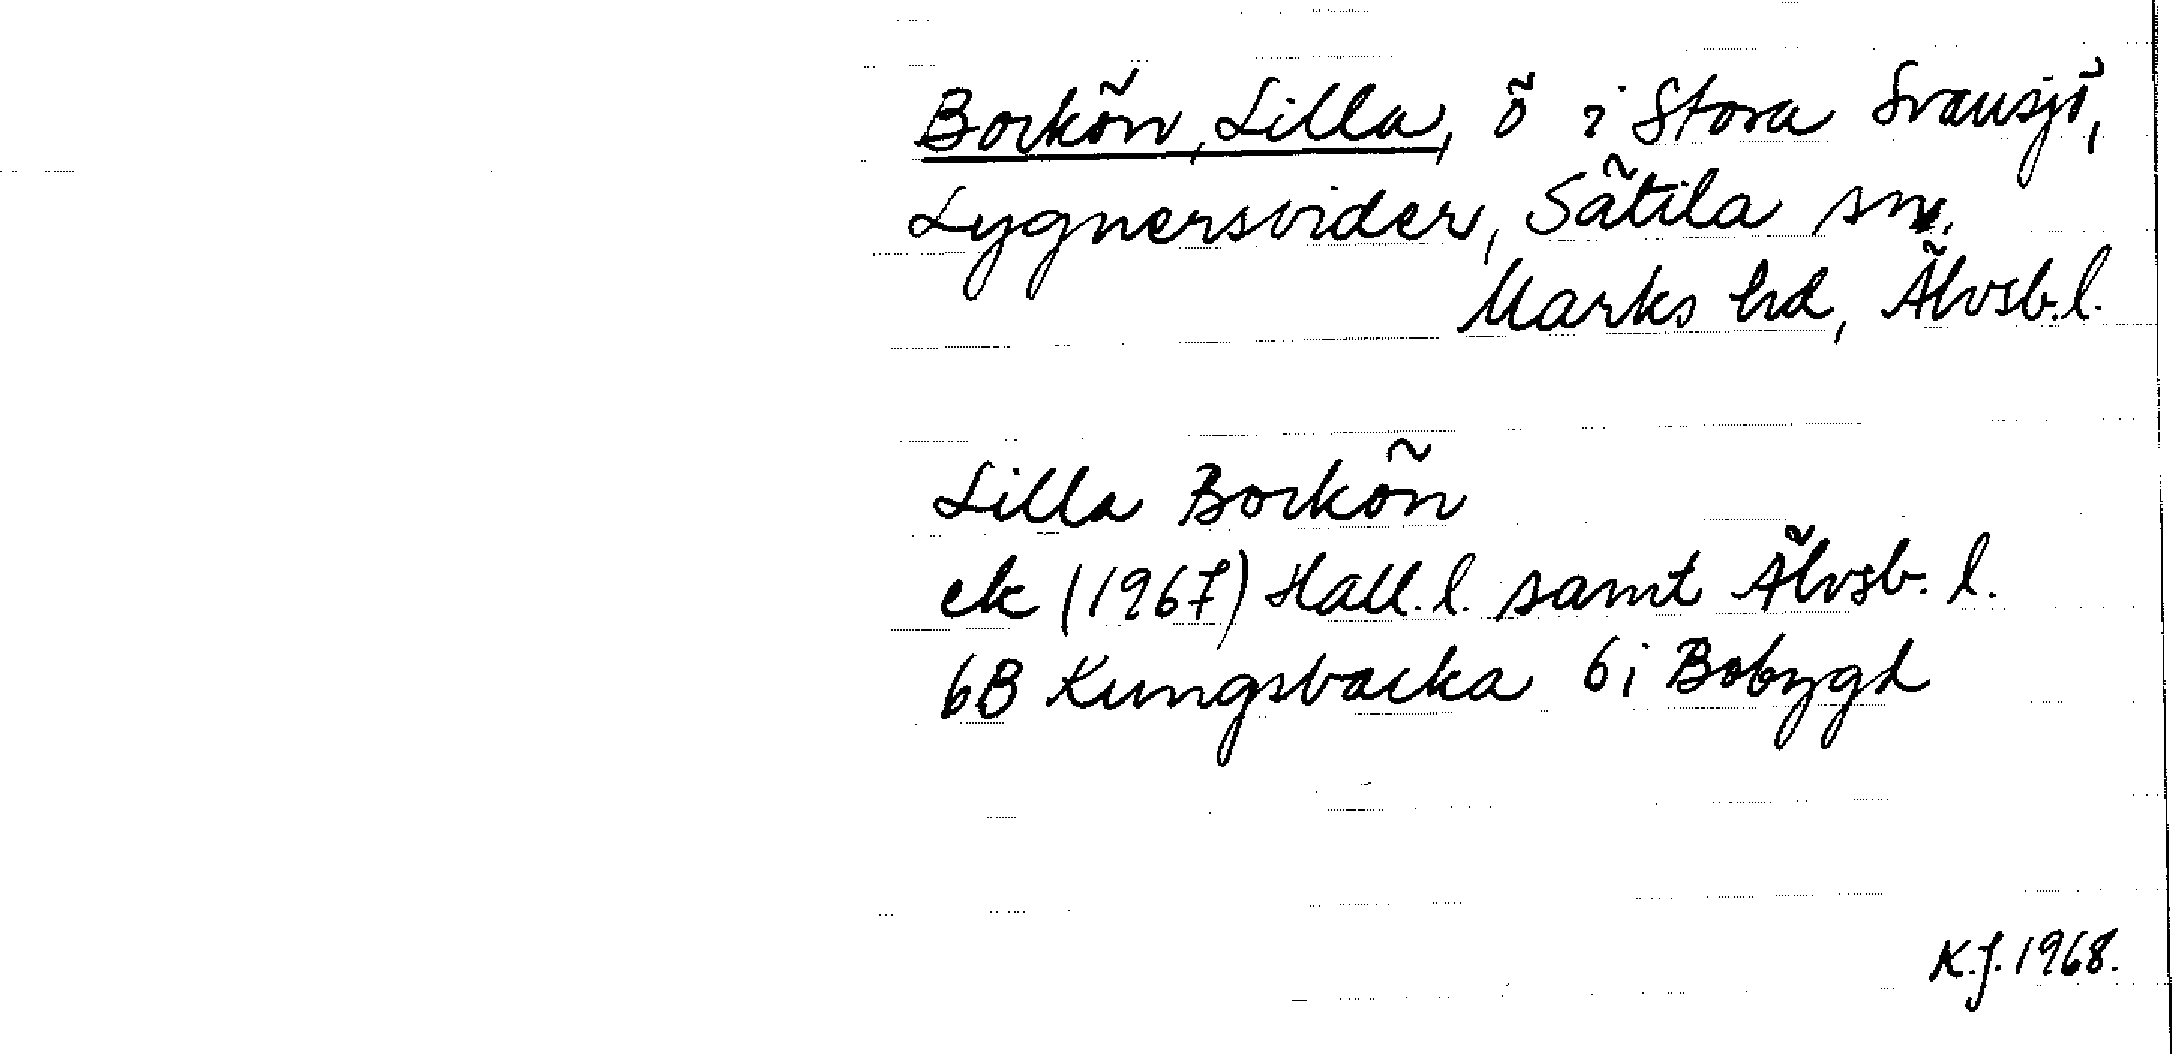 Bockön, Lilla, ö i Stora Svansjö,
Lygnersvider, Sätila sn.
Marks hd, Älvsb. l.
Lilla Bockön
ek (1967) Hall. l. samt Älvsb. l.
6B Kungsbacka 6i Bobygd
K.J. 1968.